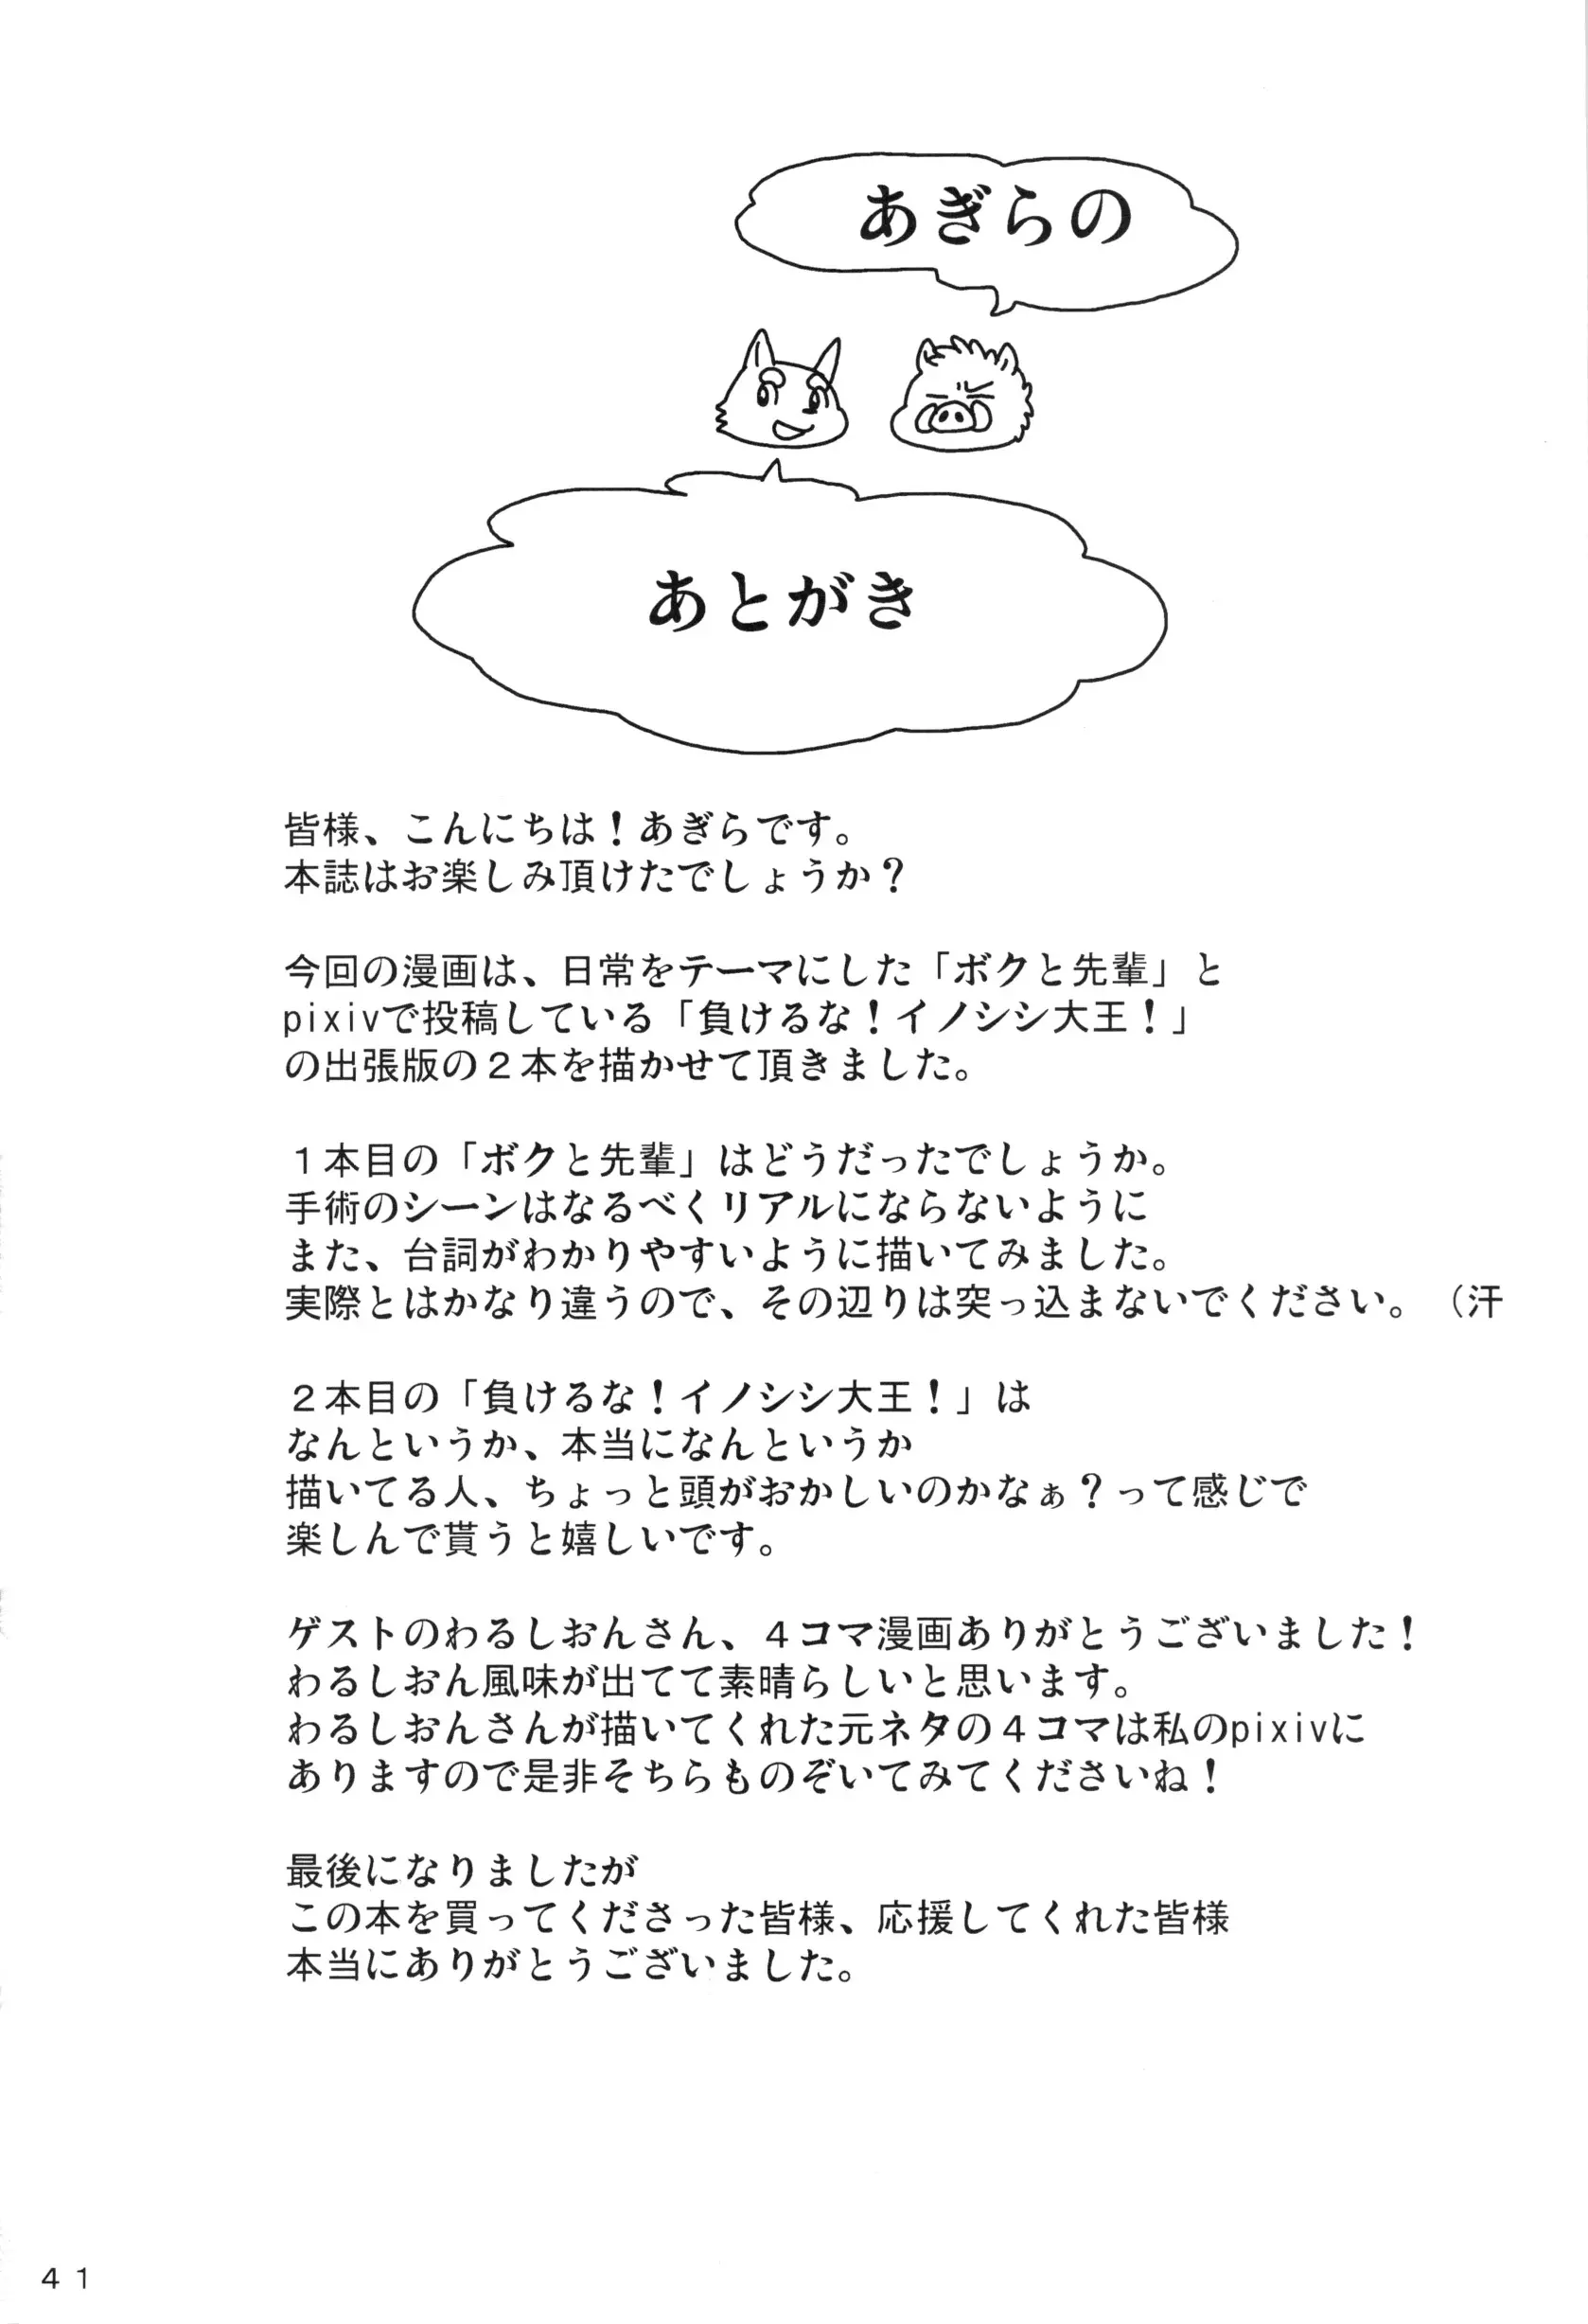 あぎらの
あとがき
皆様、こんにちは！あぎらです。
本誌はお楽しみ頂けたでしょうか？
今回の漫画は、日常をテーマにした「ボクと先輩」と
pixivで投稿している「負けるな！イノシシ大王！」
の出張版の２本を描かせて頂きました。
１本目の「ボクと先輩」はどうだったでしょうか。
手術のシーンはなるべくリアルにならないように
また、台詞がわかりやすいように描いてみました。
実際とはかなり違うので、その辺りは突っ込まないでください。（汗
２本目の「負けるな！イノシシ大王！」は
なんというか、本当になんというか
描いてる人、ちょっと頭がおかしいのかなぁ？って感じで
楽しんで貰うと嬉しいです。
ゲストのわるしおんさん、４コマ漫画ありがとうございました！
わるしおん風味が出てて素晴らしいと思います。
わるしおんさんが描いてくれた元ネタの４コマは私のpixivに
ありますので是非そちらものぞいてみてくださいね！
最後になりましたが
この本を買ってくださった皆様、応援してくれた皆様
本当にありがとうございました。
４１